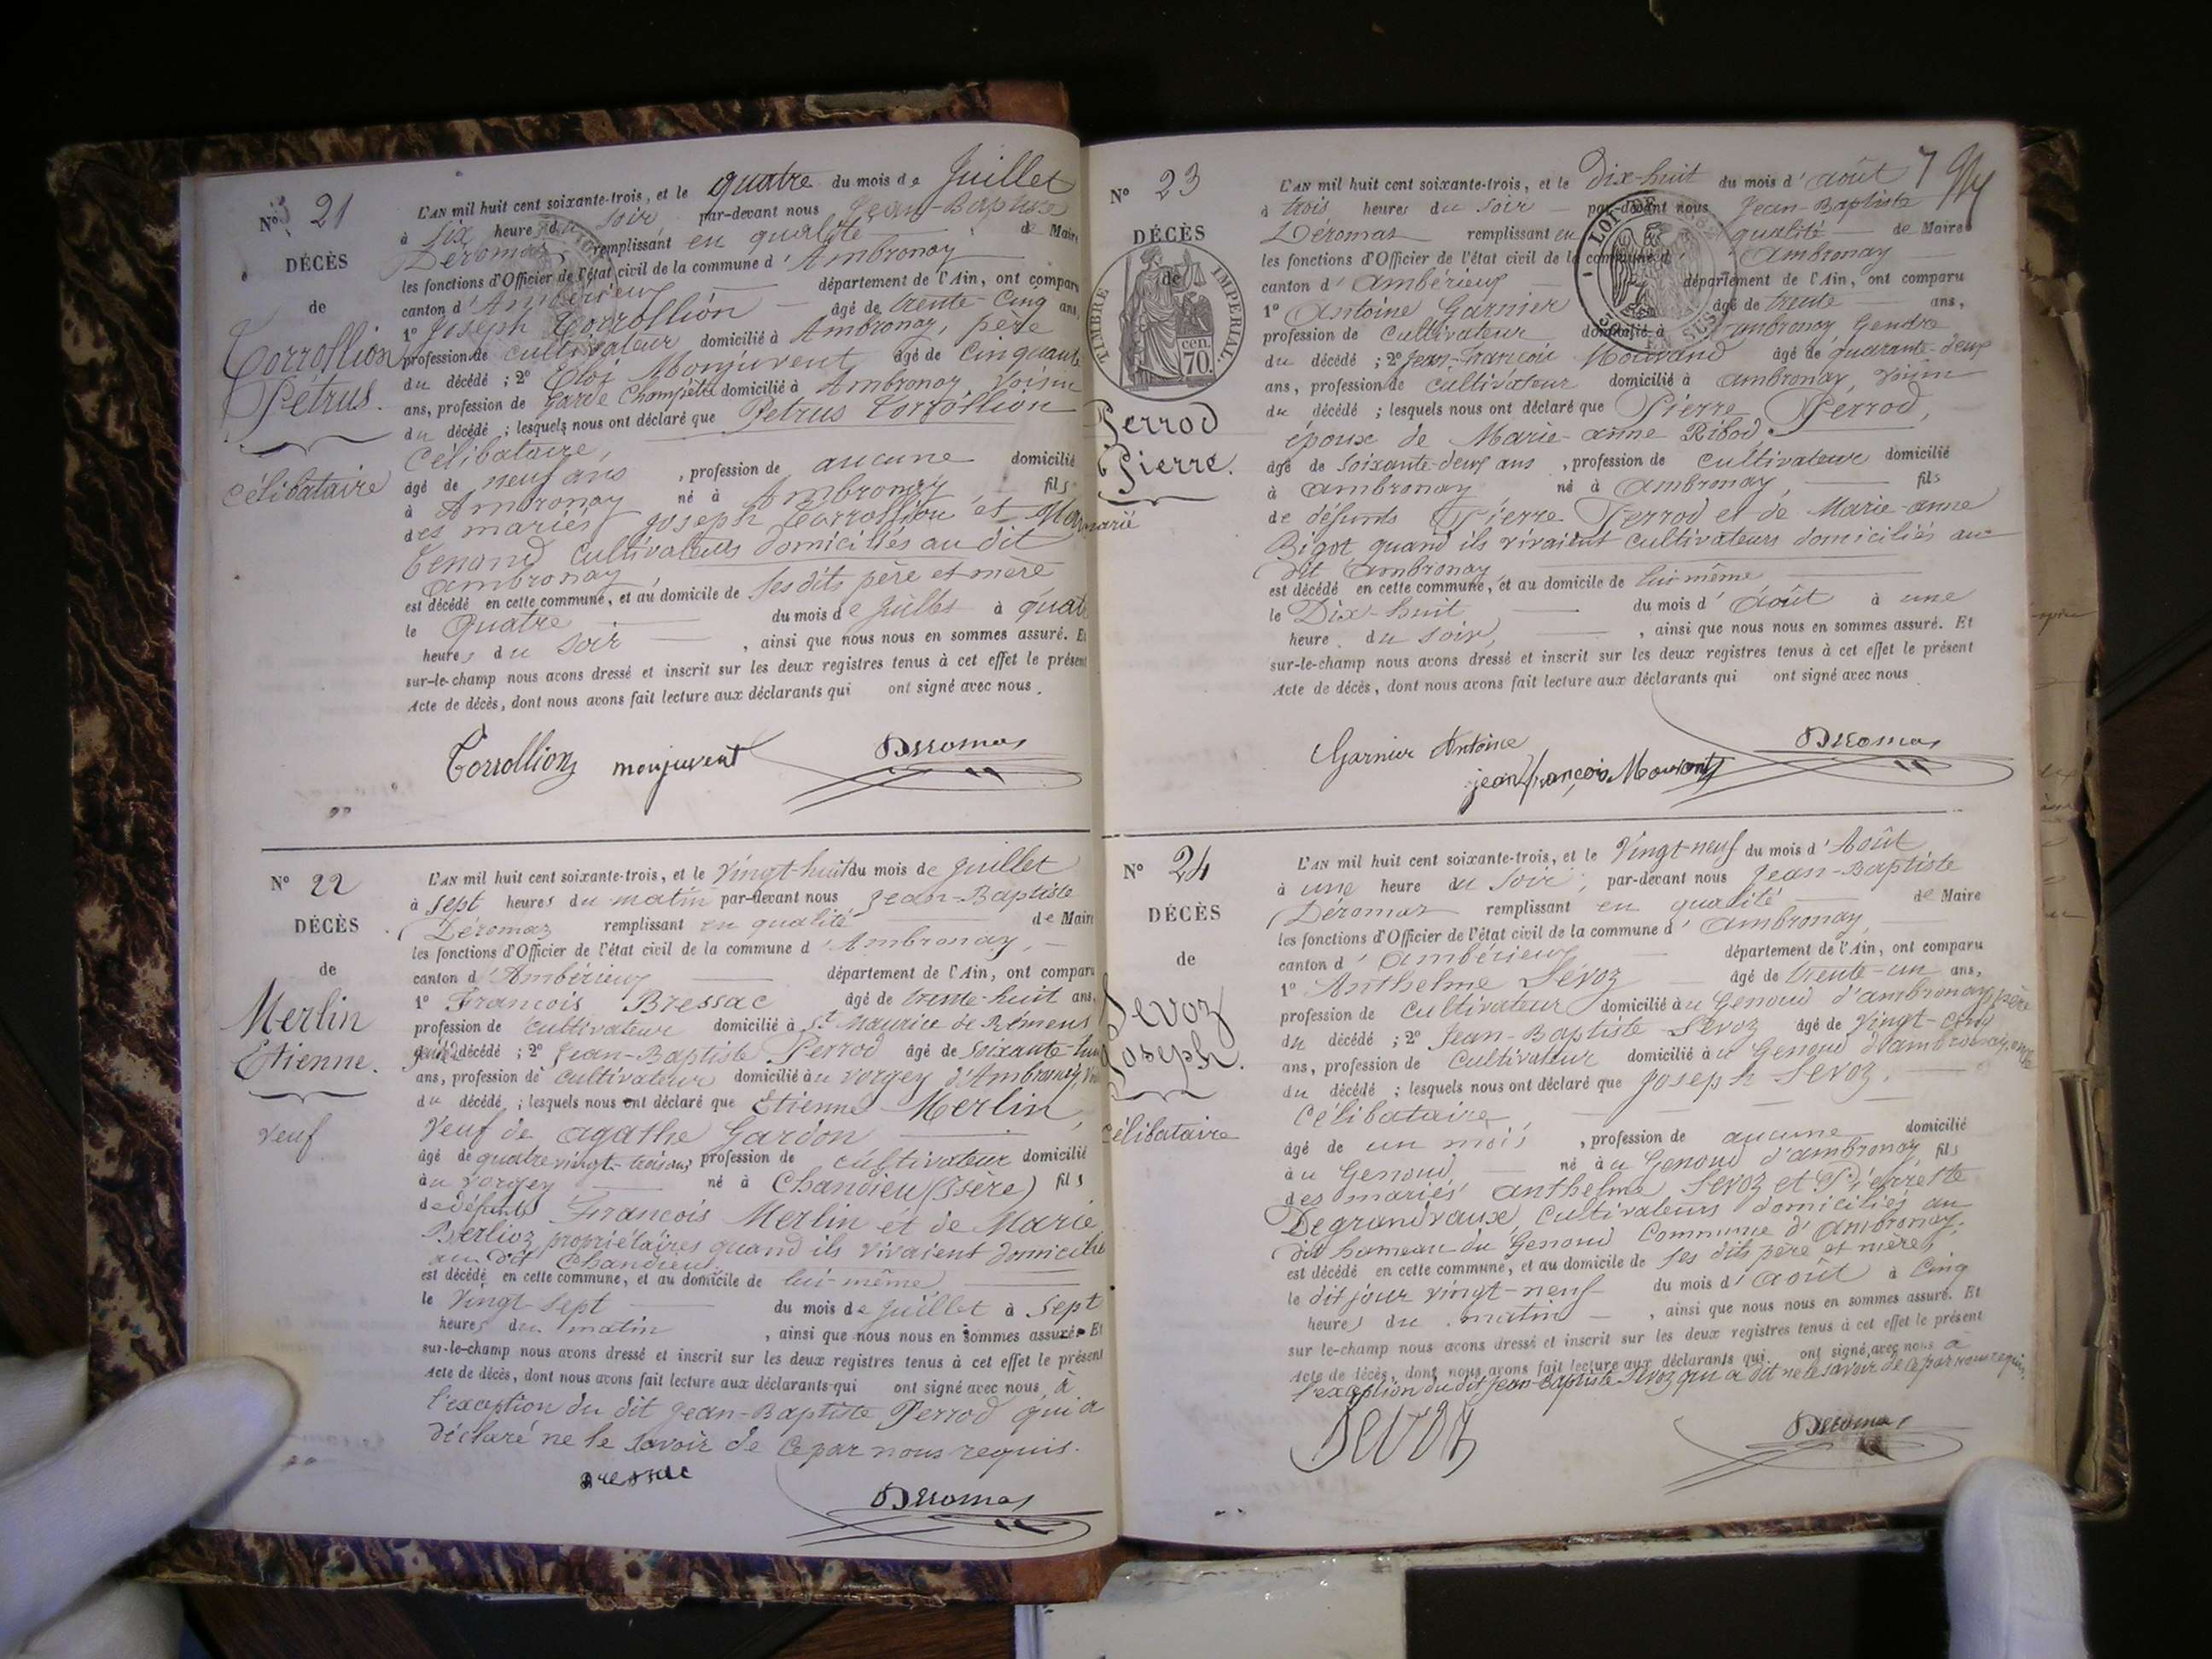 N° 21
DÉCÈS
de
Torrollion
Pétrus.
célibataire
L'AN mil huit cent soixante-trois, et le quatre du mois de Juillet
à six heure du soir par-devant nous Jean-Baptiste
Déromas remplissant en qualité de Maire
les fonctions d'Officier de l'état civil de la commune d'Ambronay
canton d'Ambérieux département de l'Ain, ont comparu
1° Joseph Torrollion âgé de trente-cinq ans,
profession de cultivateur domicilié à Ambronay, père
du décédé ; 2° Eloi Monjuvent âgé de cinquante
ans, profession de Garde Champêtre domicilié à Ambronay, voisin
du décédé ; lesquels nous ont déclaré que Petrus Torrollion
célibataire,
âgé de neuf ans , profession de aucune domicilié
à Ambronay né à Ambronay fils
des mariés Joseph Torrollion et
Tenand cultivateurs domiciliés au dit
Ambronay
est décédé en cette commune, et au domicile de ses dits père et mère
le Quatre du mois de Juillet à quatre
heures du soir , ainsi que nous nous en sommes assuré. Et
sur-le-champ nous avons dressé et inscrit sur les deux registres tenus à cet effet le présent
Acte de décès, dont nous avons fait lecture aux déclarants qui ont signé avec nous.
Torrollion monjuvent Deromas
N° 22
DÉCÈS
de
Merlin
Etienne.
veuf
L'AN mil huit cent soixante-trois, et le vingt-huit du mois de Juillet
à sept heures du matin par-devant nous Jean-Baptiste
Déromas remplissant en qualité de Maire
les fonctions d'Officier de l'état civil de la commune d'Ambronay,
canton d'Ambérieux département de l'Ain, ont comparu
1° François Bressac âgé de trente-huit ans,
profession de cultivateur domicilié à St Maurice de Rémens
décédé ; 2° Jean-Baptiste Perrod âgé de soixante-
ans, profession de cultivateur domicilié au vorgey d'Ambronay,
du décédé ; lesquels nous ont déclaré que Etienne Merlin,
veuf de agathe Gardon
âgé de quatre vingt-trois ans, profession de cultivateur domicilié
au vorgey né à Chandieu (Isère) fils
de défunts François Merlin et de Marie
Berlioz propriétaires quand ils vivaient domicilié
au dit Chandieu
est décédé en cette commune, et au domicile de lui-même
le vingt-sept du mois de Juillet à sept
heures du matin , ainsi que nous nous en sommes assuré. Et
sur-le-champ nous avons dressé et inscrit sur les deux registres tenus à cet effet le présent
Acte de décès, dont nous avons fait lecture aux déclarants qui ont signé avec nous, à
l'exception du dit Jean-Baptiste Perrod qui a
déclaré ne le savoir de ce par nous requis.
Bressac Deromas
7
N° 23
DÉCÈS
de
TIMBRE IMPÉRIAL.
70 cen.
Perrod
Pierre.
marié
L'AN mil huit cent soixante-trois, et le Dix-huit du mois d'août
à trois heures du soir par-devant nous Jean-Baptiste
Déromas remplissant en qualité de Maire
les fonctions d'Officier de l'état civil de la commune d'Ambronay
canton d'Ambérieux département de l'Ain, ont comparu
1° Antoine Garnier âgé de trente ans,
profession de cultivateur domicilié à ambronay Gendre
du décédé ; 2° Jean-François Mourand âgé de quarante-deux
ans, profession de cultivateur domicilié à ambronay, voisin
du décédé ; lesquels nous ont déclaré que Pierre Perrod,
époux de Marie-anne Ribod
âgé de soixante-deux ans , profession de cultivateur domicilié
à ambronay né à ambronay, fils
de défunts Pierre Perrod et de Marie-anne
Bigot quand ils vivaient cultivateurs domiciliés au
dit ambronay
est décédé en cette commune, et au domicile de lui-même
le Dix-huit du mois d'août à une
heure du soir, , ainsi que nous nous en sommes assuré. Et
sur-le-champ nous avons dressé et inscrit sur les deux registres tenus à cet effet le présent
Acte de décès, dont nous avons fait lecture aux déclarants qui ont signé avec nous
Garnier Antoine
jean françois Mourand Deromas
N° 24
DÉCÈS
de
Sevoz
Joseph.
célibataire
L'AN mil huit cent soixante-trois, et le Vingt-neuf du mois d'Août
à une heure du soir, par-devant nous Jean-Baptiste
Déromas remplissant en qualité de Maire
les fonctions d'Officier de l'état civil de la commune d'ambronay,
canton d'ambérieux département de l'Ain, ont comparu
1° Anthelme Sévoz âgé de trente-un ans,
profession de cultivateur domicilié au Genoud d'ambronay, père
du décédé ; 2° Jean-Baptiste Sevoz âgé de vingt-cinq
ans, profession de cultivateur domicilié au Genoud d'ambronay, oncle
du décédé ; lesquels nous ont déclaré que Joseph Sevoz,
célibataire,
âgé de un mois , profession de aucune domicilié
au Genoud né au Genoud d'ambronay fils
des mariés anthelme Sevoz et Pierrette
Degrandvaux, cultivateurs domiciliés au
dit hameau du Genoud Commune d'ambronay.
est décédé en cette commune, et au domicile de ses dits père et mère,
le dit jour vingt-neuf du mois d'août à cinq
heures du matin , ainsi que nous nous en sommes assuré. Et
sur le-champ nous avons dressé et inscrit sur les deux registres tenus à cet effet le présent
Acte de décès, dont nous avons fait lecture aux déclarants qui ont signé avec nous à
l'exception du dit Jean-Baptiste Sevoz qui a dit ne le savoir de ce par nous requis.
Sevoz Deromas